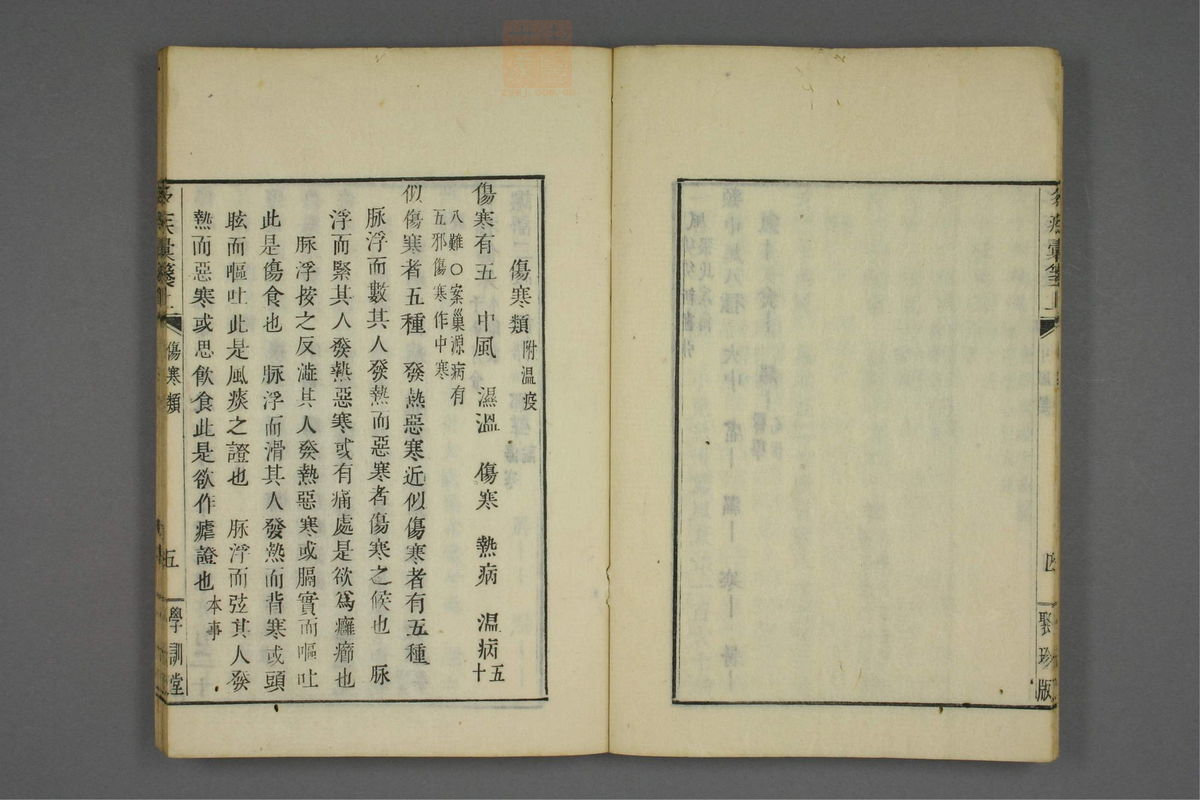 四
聚珍版
傷寒類附溫疫
傷寒有五 中風 濕溫 傷寒 熱病 溫病五十
八難○案巢源病有
五邪傷寒作中寒
似傷寒者五種 發熱惡寒近似傷寒者有五種
脉浮而數其人發熱而惡寒者傷寒之候也 脉
浮而緊其人發熱惡寒或有痛處是欲爲癰癤也
脉浮按之反澁其人發熱惡寒或膈實而嘔吐
此是傷食也 脉浮而滑其人發熱而背寒或頭
眩而嘔吐此是風痰之證也 脉浮而弦其人發
熱而惡寒或思飲食此是欲作瘧證也本事
疾彙箋上
傷寒類
五
學訓堂